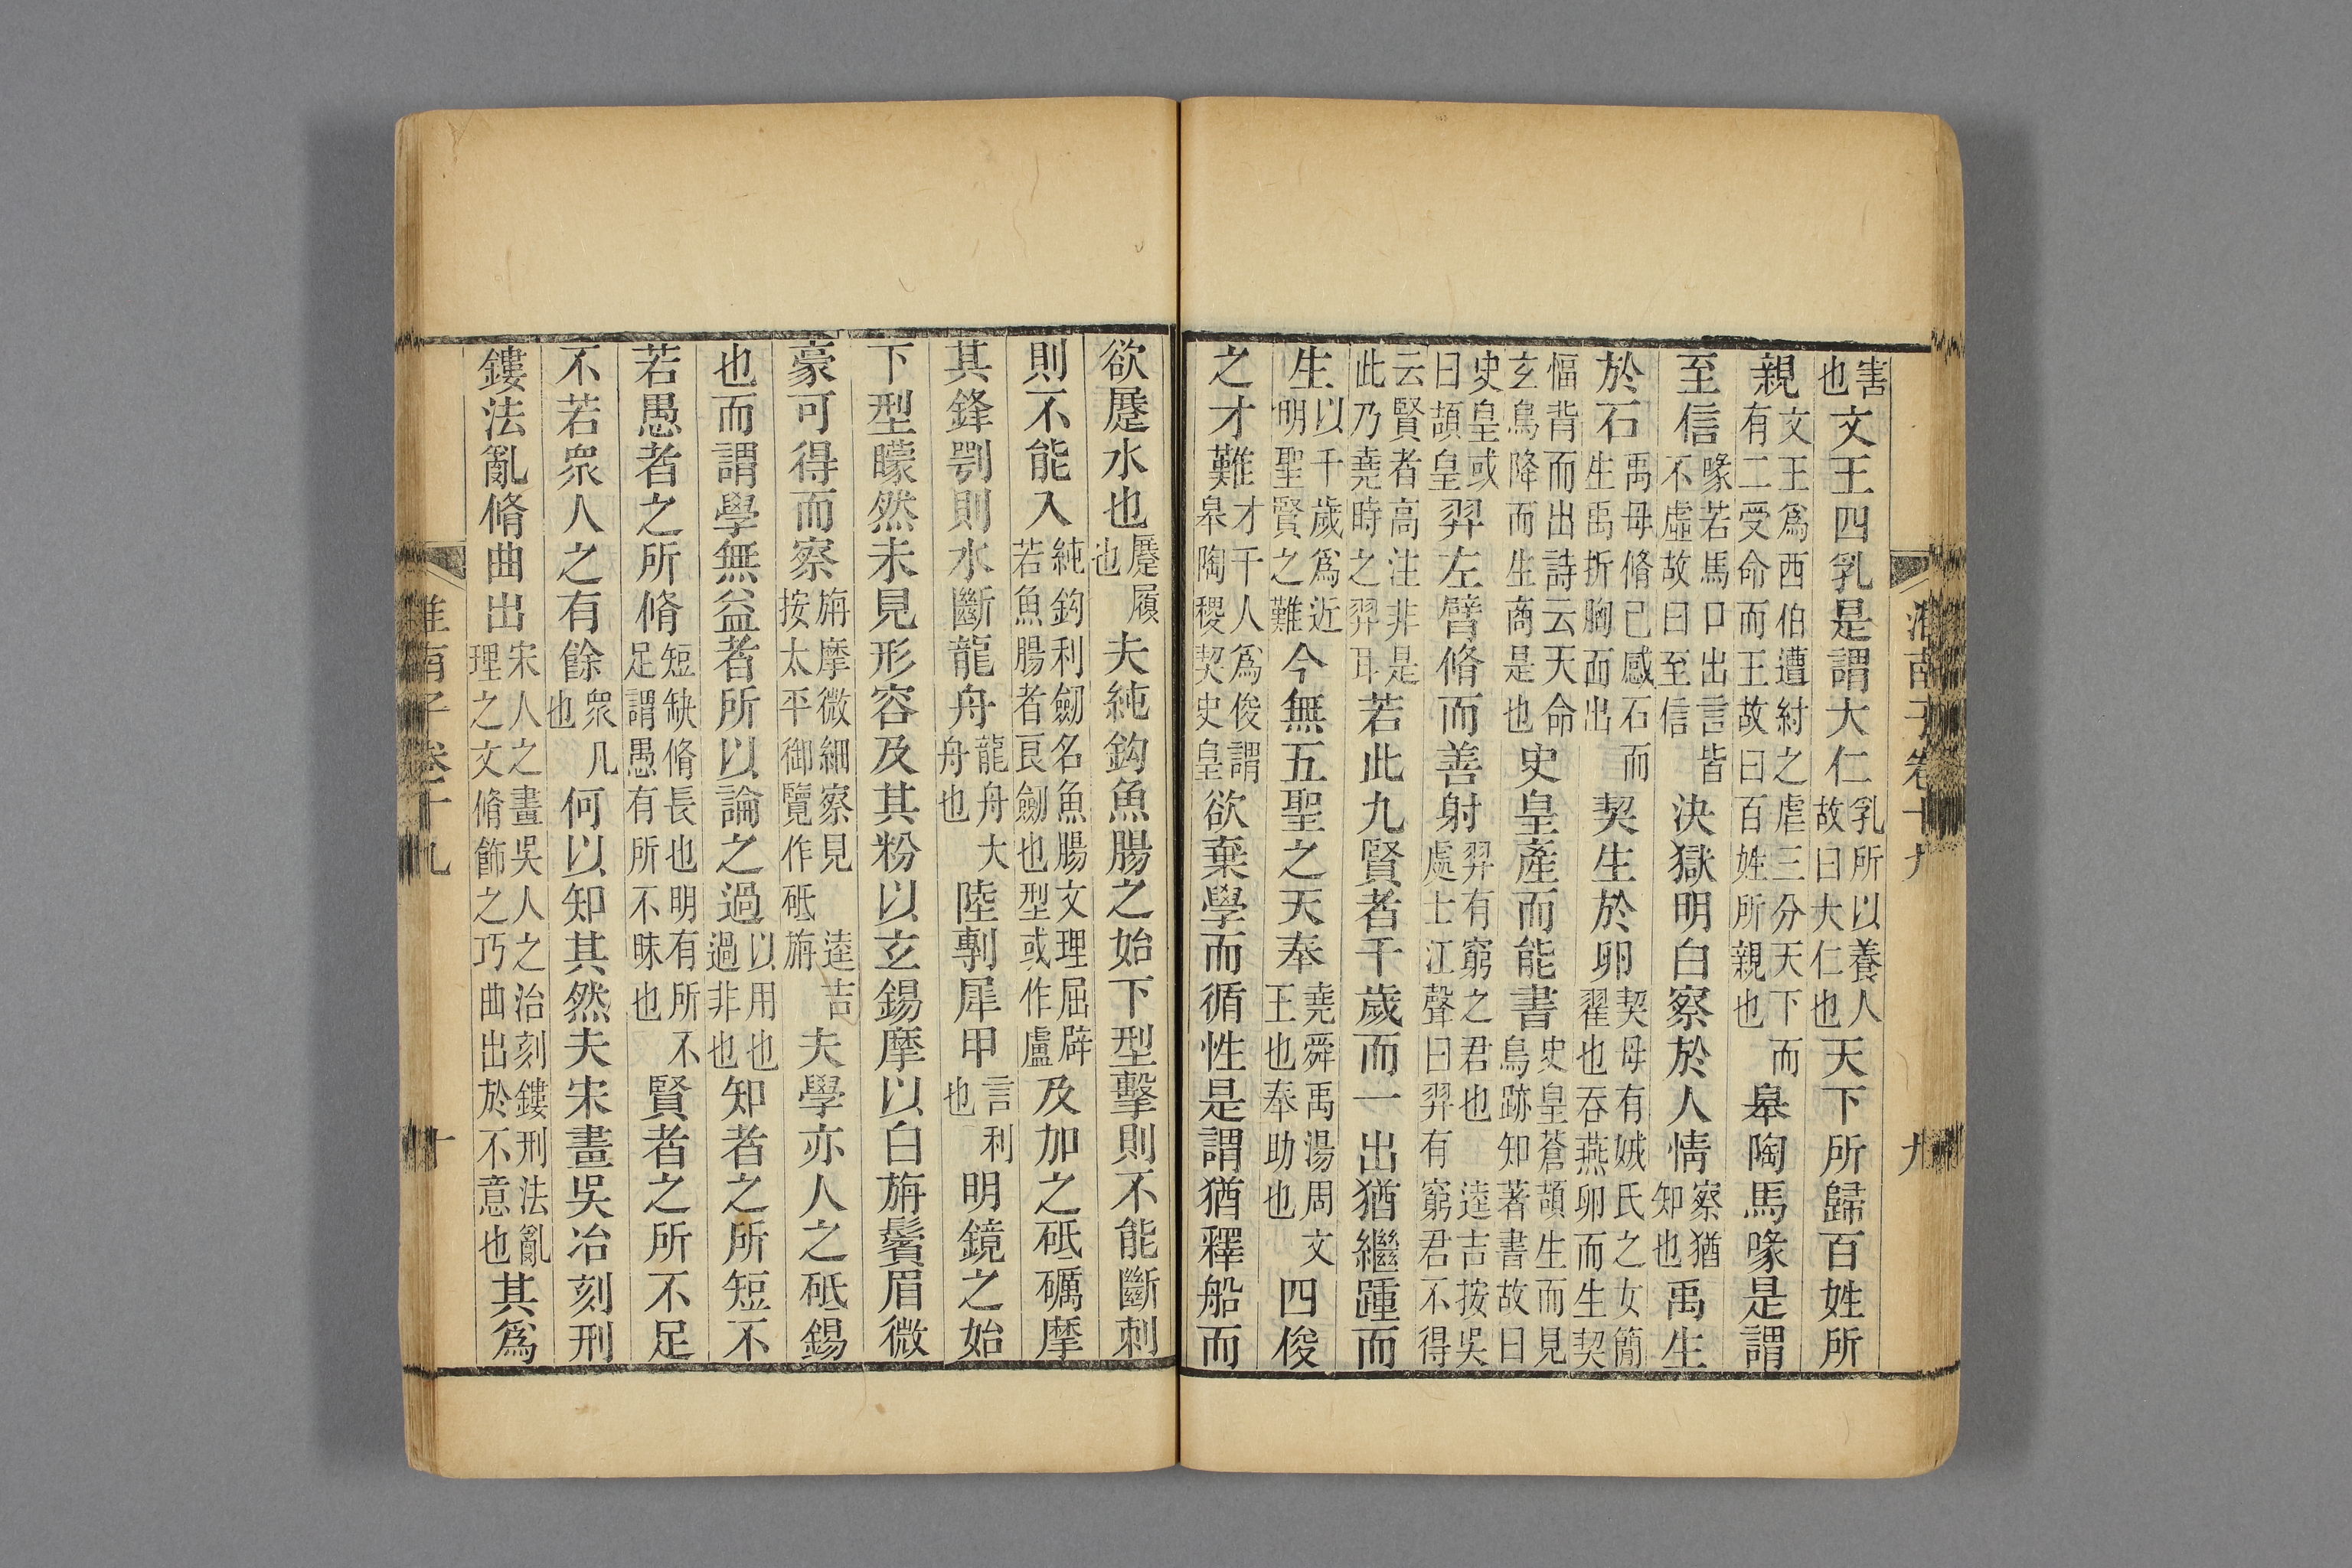 害也文王四乳是謂大仁乳所以養人故曰大仁也天下所歸百姓所
親文王爲西伯遭紂之虐三分天下而有二受命而王故曰百姓所親也皋陶馬喙是謂
至信喙若馬口出言皆不虛故曰至信決獄明白察於人情察猶知也禹生
於石禹母脩已感石而生禹折胸而出契生於卵契母有娀氏之女簡翟也吞燕卵而生契
愊背而出詩云天命玄鳥降而生商是也史皇產而能書史皇蒼頡生而見鳥跡知著書故曰
史皇或曰頡皇羿左臂脩而善射羿有窮之君也逵吉按吳處士江聲曰羿有窮君不得
云賢者高注非是此乃堯時之羿耳若此九賢者千歲而一出猶繼踵而
生以千歲爲近明聖賢之難今無五聖之天奉堯舜禹湯周文王也奉助也四俊
之才難才千人爲俊謂皋陶稷契史皇欲棄學而循性是謂猶釋船而
淮南子卷十九 九
欲蹷水也蹷履也夫純鈎魚腸之始下型擊則不能斷刺
則不能入純鈎利劒名魚腸文理屈辟若魚腸者良劒也型或作盧及加之砥礪摩
其鋒剄則水斷龍舟龍舟大舟也陸剸犀甲言利也明鏡之始
下型矇然未見形容及其粉以玄錫摩以白旃鬢眉微
豪可得而察旃摩微細察見逵吉按太平御覽作砥旃夫學亦人之砥錫
也而謂學無益者所以論之過以用也過非也知者之所短不
若愚者之所脩短缺脩長也明有所不足謂愚有所不昧也賢者之所不足
不若衆人之有餘衆凡也何以知其然夫宋畫吳冶刻刑
鏤法亂脩曲出宋人之畫吳人之治刻鏤刑法亂理之文脩飾之巧曲出於不意也其爲
淮南子卷十九 十